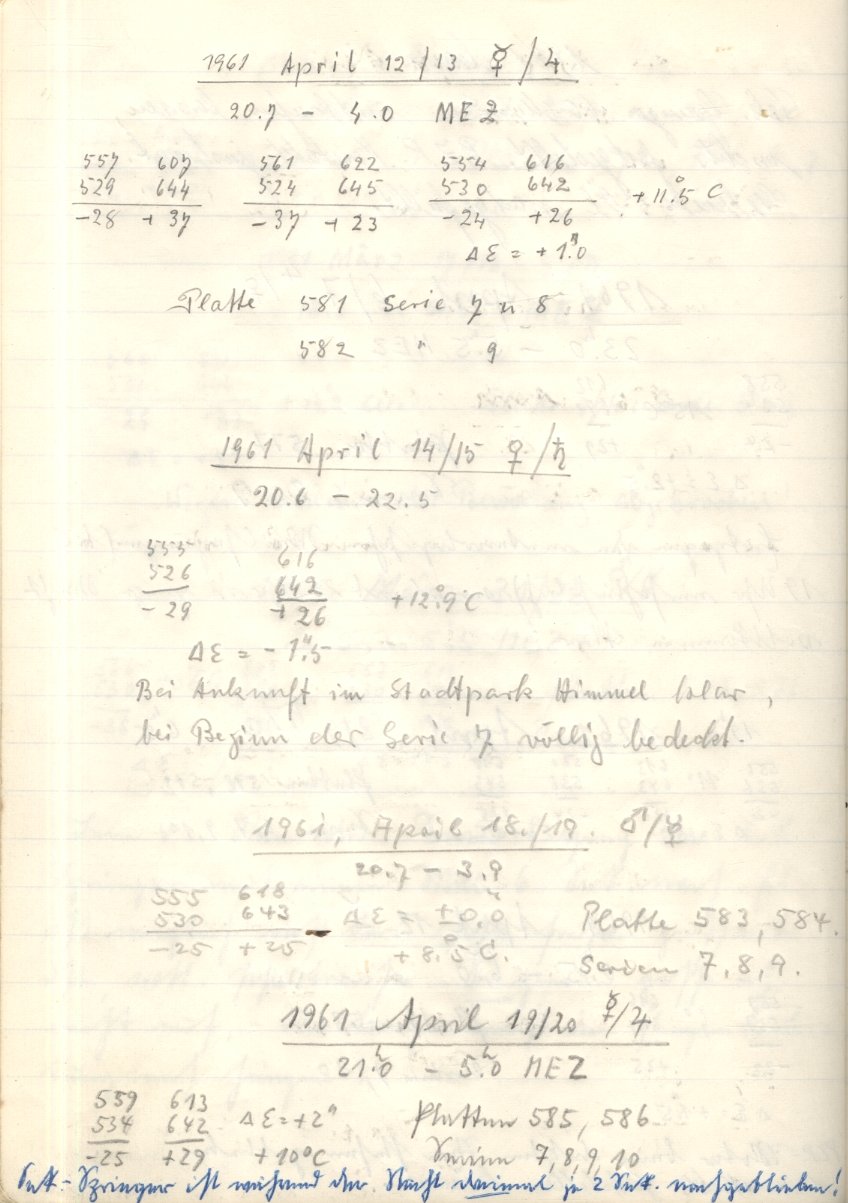 1961 April 12/13 ☿/♃
20.7 – 4.0 MEZ
557 607 561 622 554 616
529 644 524 645 530 642 + 11.°5 C
-28 + 37 -37 + 23 -24 +26
Δ ε = + 1."0
Platte 581 Serie 7 u 8
582 " 9
1961 April 14/15 ♀/♄
20.6 – 22.5
555 616
526 642 +12.°9 C
- 29 + 26
Δ ε = - 1."5
Bei Ankunft im Stadtpark Himmel klar,
bei Beginn der Serie 7 völlig bedeckt.
1961, April 18./19. ♂/☿
20.7 – 3.9
555 618
530 643 Δ ε = ±0."0 Platte 583, 584.
-25 +25 + 8.°5 C. Serien 7, 8, 9.
1961 April 19/20 ☿/♃
21.ʰ0 – 5.ʰ0 MEZ
559 613
534 642 Δ ε = +2" Platten 585, 586
-25 +29 +10°C Serien 7, 8, 9, 10
Sek.-Springer ist während der Nacht dreimal je 2 Sek. nachgeblieben!